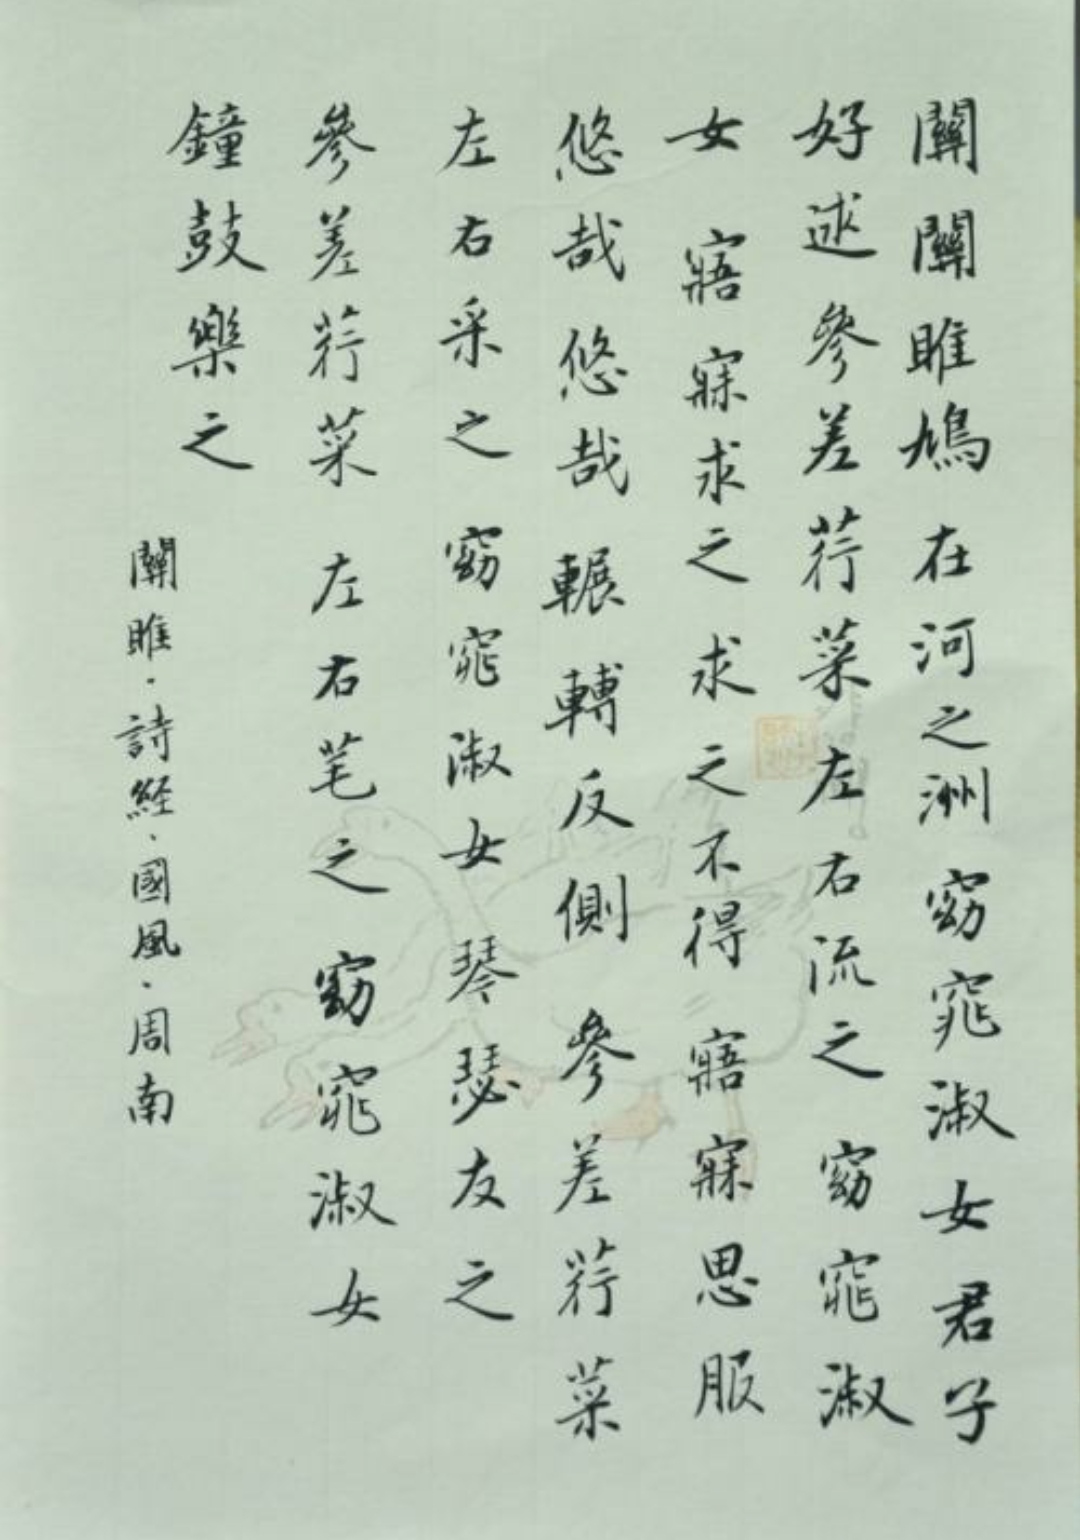 關關雎鳩在河之洲窈窕淑女君子
好逑參差荇菜左右流之窈窕淑
女寤寐求之求之不得寤寐思服
悠哉悠哉輾轉反側參差荇菜
左右采之窈窕淑女琴瑟友之
參差荇菜左右芼之窈窕淑女
鐘鼓樂之
關雎·詩経·國風·周南